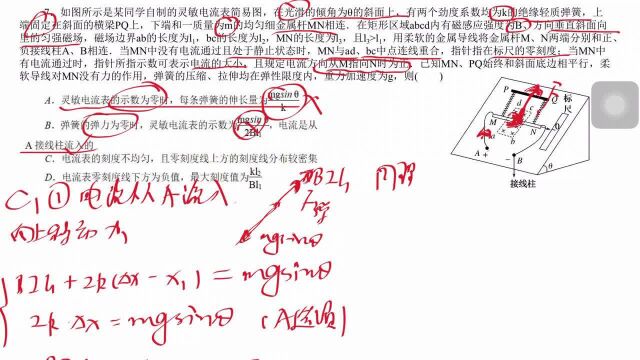 如图所示是某同学自制的灵敏电流表简易图，在光滑的倾角为θ的斜面上，有两个劲度系数均为k的绝缘轻质弹簧，上
端固定在斜面的横梁PQ上，下端和一质量为m的均匀细金属杆MN相连．在矩形区域abcd内有磁感应强度为B、方向垂直斜面向
上的匀强磁场，磁场边界ab的长度为l₁，bc的长度为l₂，MN的长度为l₃，且l₃>l₁，用柔软的金属导线将金属杆M、N两端分别和正、
负接线柱A、B相连．当MN中没有电流通过且处于静止状态时，MN与ad、bc中点连线重合，指针指在标尺的零刻度；当MN中
有电流通过时，指针所指示数可表示电流的大小，且规定电流方向从M指向N时为正．已知MN、PQ始终和斜面底边相平行，柔
软导线对MN没有力的作用，弹簧的压缩、拉伸均在弹性限度内，重力加速度为g，则(
A．灵敏电流表的示数为零时，每条弹簧的伸长量为mgsinθ/k
B．弹簧的弹力为零时，灵敏电流表的示数为mgsinθ/2Bl₁，电流是从
A接线柱流入的
C．电流表的刻度不均匀，且零刻度线上方的刻度线分布较密集
D．电流表零刻度线下方为负值，最大刻度值为kl₂/Bl₁
P
Q
标
尺
M
N
d
c
a
b
A
B
+
−
θ
接线柱
C, ① 电流从A流入
向上移动x₁
BIl₁
同理
F弹
mgsinθ
BIl₁+2k(Δx−x₁)=mgsinθ
2k·Δx=mgsinθ (A选项)